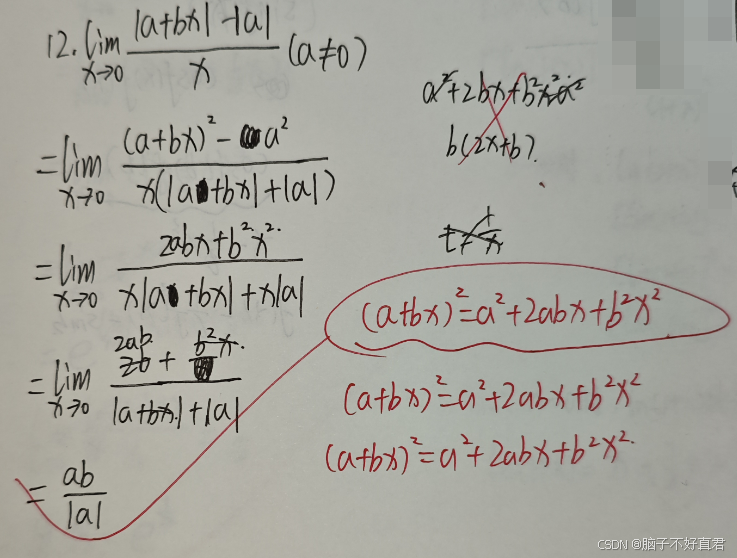 12. lim x→0 (|a+bx| - |a|)/x (a≠0)
= lim x→0 ((a+bx)² - a²)/(x(|a+bx|+|a|))
= lim x→0 (2abx+b²x²)/(x|a+bx|+x|a|)
= lim x→0 (2ab + b²x)/(|a+bx|+|a|)
= ab/|a|
a²+2bx+b²x²-a²
b(2x+b)
t=1/x
(a+bx)²=a²+2abx+b²x²
(a+bx)²=a²+2abx+b²x²
(a+bx)²=a²+2abx+b²x²
CSDN @脑子不好直君